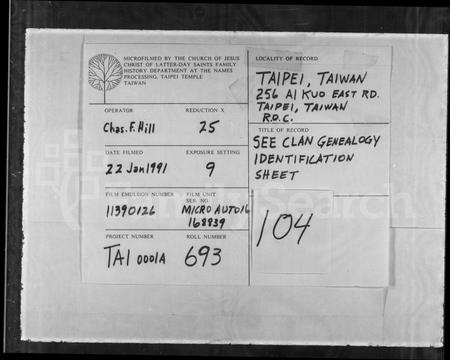 MICROFILMED BY THE CHURCH OF JESUS
CHRIST OF LATTER-DAY SAINTS FAMILY
HISTORY DEPARTMENT AT THE NAMES
PROCESSING, TAIPEI TEMPLE
TAIWAN
OPERATOR
REDUCTION X
Chas. F. Hill
25
DATE FILMED
EXPOSURE SETTING
22 Jan 1991
9
FILM EMULSION NUMBER
FILM UNIT
SER. NO.
11390126
MICRO AUTO 16
168839
PROJECT NUMBER
ROLL NUMBER
TAI 0001A
693
LOCALITY OF RECORD
TAIPEI, TAIWAN
256 AI KUO EAST RD.
TAIPEI, TAIWAN
R.O.C.
TITLE OF RECORD
SEE CLAN GENEALOGY
IDENTIFICATION
SHEET
104
FamilySearch